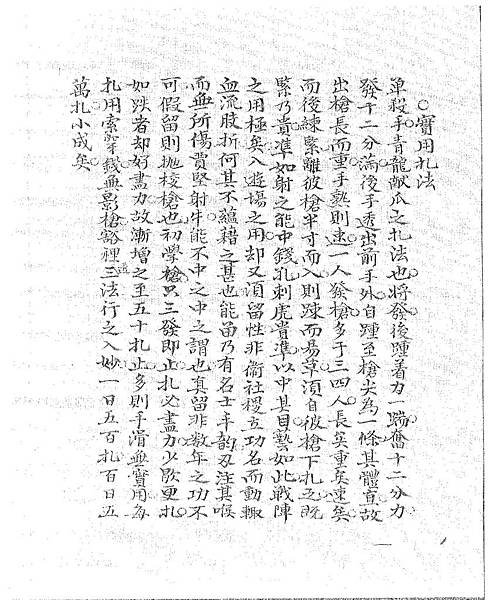 ○實用扎法
單殺手青龍獻爪之扎法也將發後踵着力一蹋奮十二分力
發十二分滿後手透出前手外自踵至槍尖為一條其體直故
出槍長而重手熟則速一人發槍多于三四人長矣重矣速矣
而後練緊離彼槍半寸而入則疎而易革須自彼槍下扎之既
緊乃貴準如射之能中錢孔刺虎貴準以中其目藝如此戰陣
之用極矣入遊場之用却又須留性非衞社稷立功名而動輒
血流股折何其不蘊藉之甚也能留乃有名士丰韵刃注其喉
而無所傷貫堅射牛能不中之中之謂也真留非數年之功不
可假留則拋梭槍也初學槍只三發即止扎必盡力少歇更扎
如跌者却好盡力故漸增之至五十扎止多則手滑無實用每
扎用索穿錢無影槍裡三法行之入妙一日五百扎百日五
萬扎小成矣